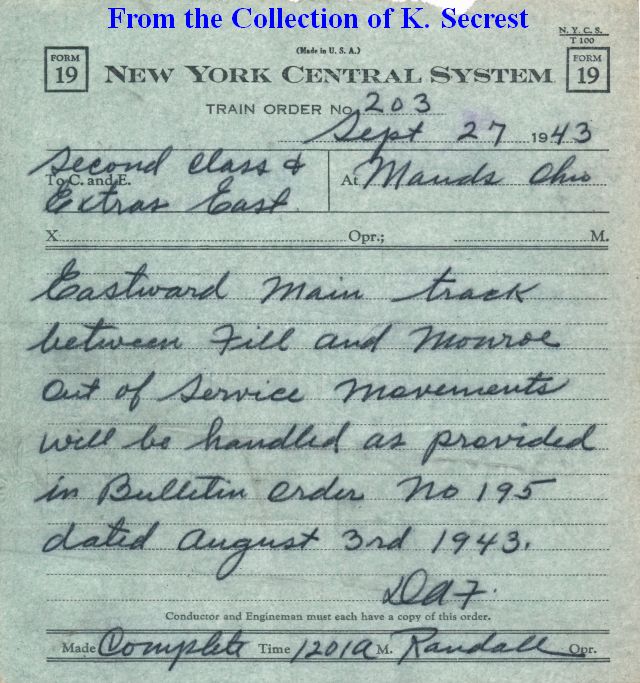 From the Collection of K. Secrest
N. Y. C. S.
T 100
(Made in U. S. A.)
FORM 19
NEW YORK CENTRAL SYSTEM
FORM 19
TRAIN ORDER No. 203
Sept 27 1943
Second Class &
To C. and E.
Extras East
At Mauds Ohio
X Opr.; M.
Eastward Main track
between Fill and Monroe
out of Service Movements
will be handled as provided
in Bulletin order No 195
dated August 3rd 1943.
DAF.
Conductor and Engineman must each have a copy of this order.
Made Complete Time 1201A M. Randall Opr.